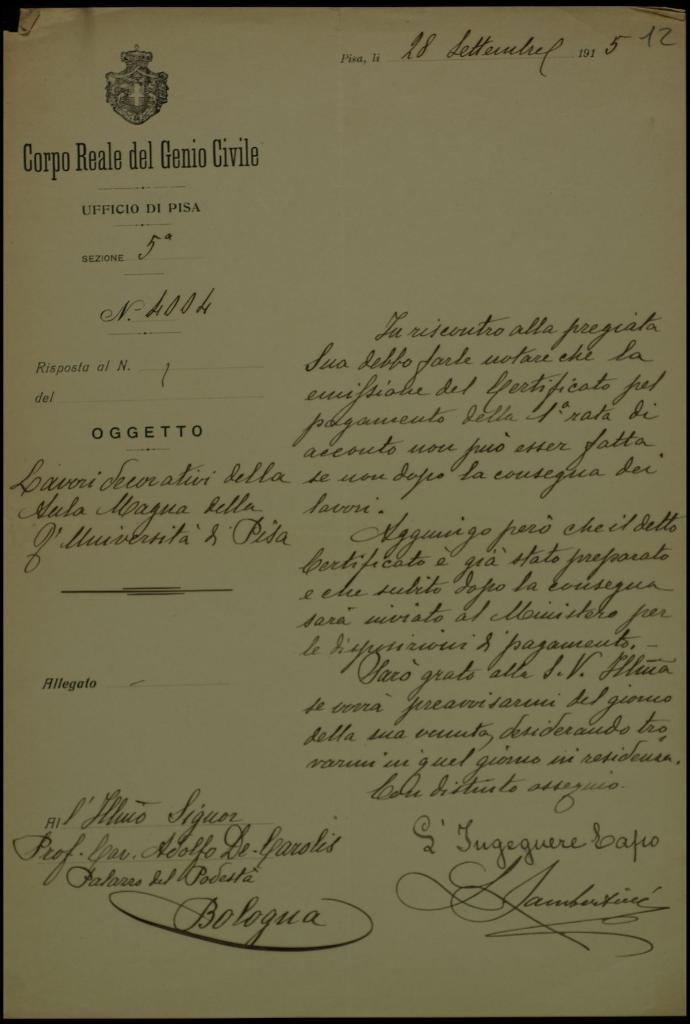 12
Pisa, li 28 Settembre 1915
Corpo Reale del Genio Civile
UFFICIO DI PISA
SEZIONE 5ª
N. 4004
Risposta al N.
del
OGGETTO
Lavori decorativi della
Aula Magna della
Rª Università di Pisa
Allegato
In riscontro alla pregiata
Sua debbo farle notare che la
emissione del Certificato pel
pagamento della 1ª rata di
acconto non può esser fatta
se non dopo la consegna dei
lavori.
Aggiungo però che il detto
Certificato è già stato preparato
e che subito dopo la consegna
sarà inviato al Ministero per
le disposizioni di pagamento. —
Sarò grato alla S. V. Illma
se vorrà preavvisarmi del giorno
della sua venuta, desiderando tro
varmi in quel giorno in residenza.
Con distinto ossequio.
L'Ingegnere Capo
Lambertini
All'Illmo Signor
Prof. Cav. Adolfo De-Carolis
Palazzo del Podestà
Bologna